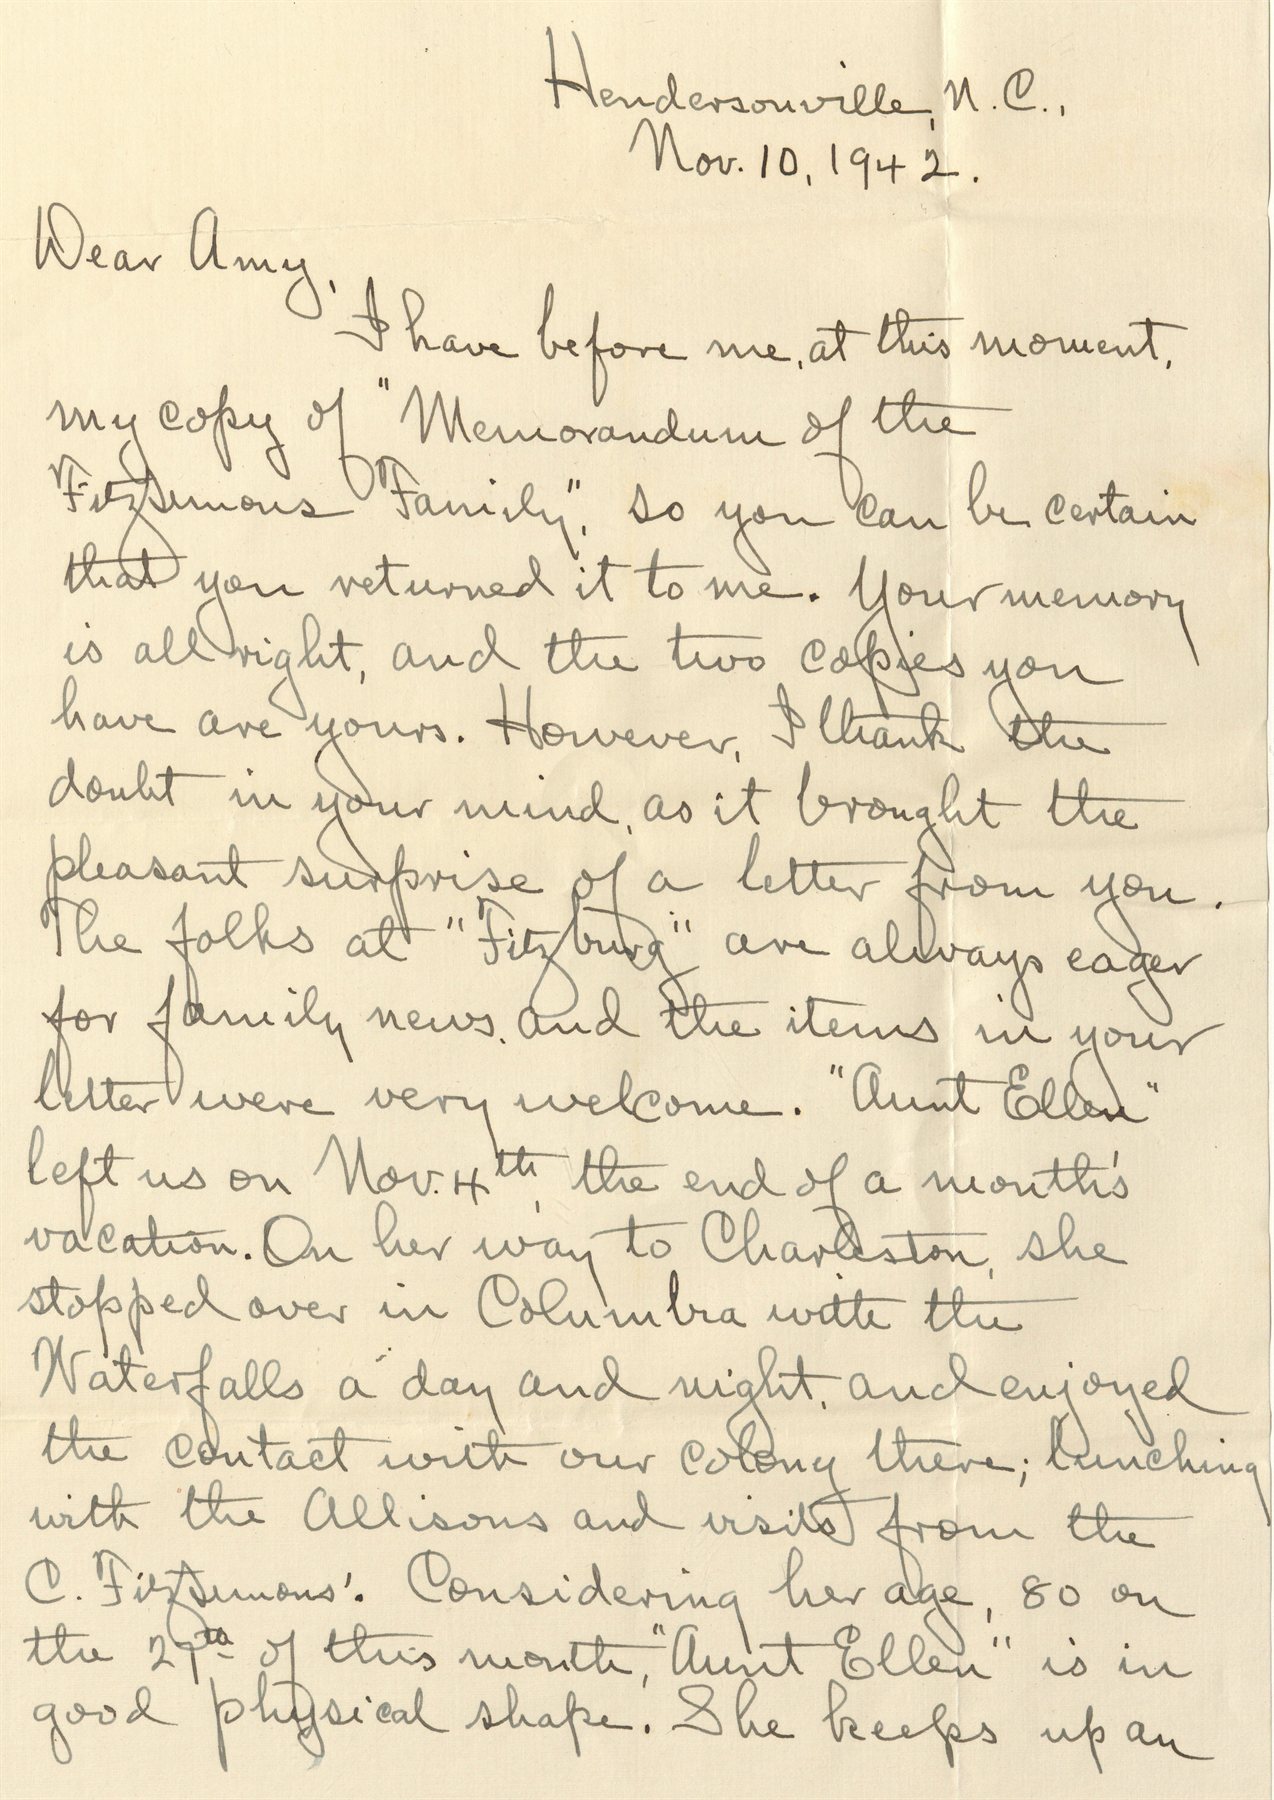 Hendersonville, N.C.,
Nov. 10, 1942.
Dear Amy,
I have before me, at this moment,
my copy of "Memorandum of the
Fitzsimons Family", so you can be certain
that you returned it to me. Your memory
is all right, and the two copies you
have are yours. However, I thank the
doubt in your mind, as it brought the
pleasant surprise of a letter from you.
The folks at "Fitzburg" are always eager
for family news, and the items in your
letter were very welcome. "Aunt Ellen"
left us on Nov. 4th, the end of a month's
vacation. On her way to Charleston, she
stopped over in Columbia with the
Waterfalls a day and night, and enjoyed
the contact with our colony there; lunching
with the Allisons and visits from the
C. Fitzsimons'. Considering her age, 80 on
the of this month, "Aunt Ellen" is in
good physical shape. She keeps up an